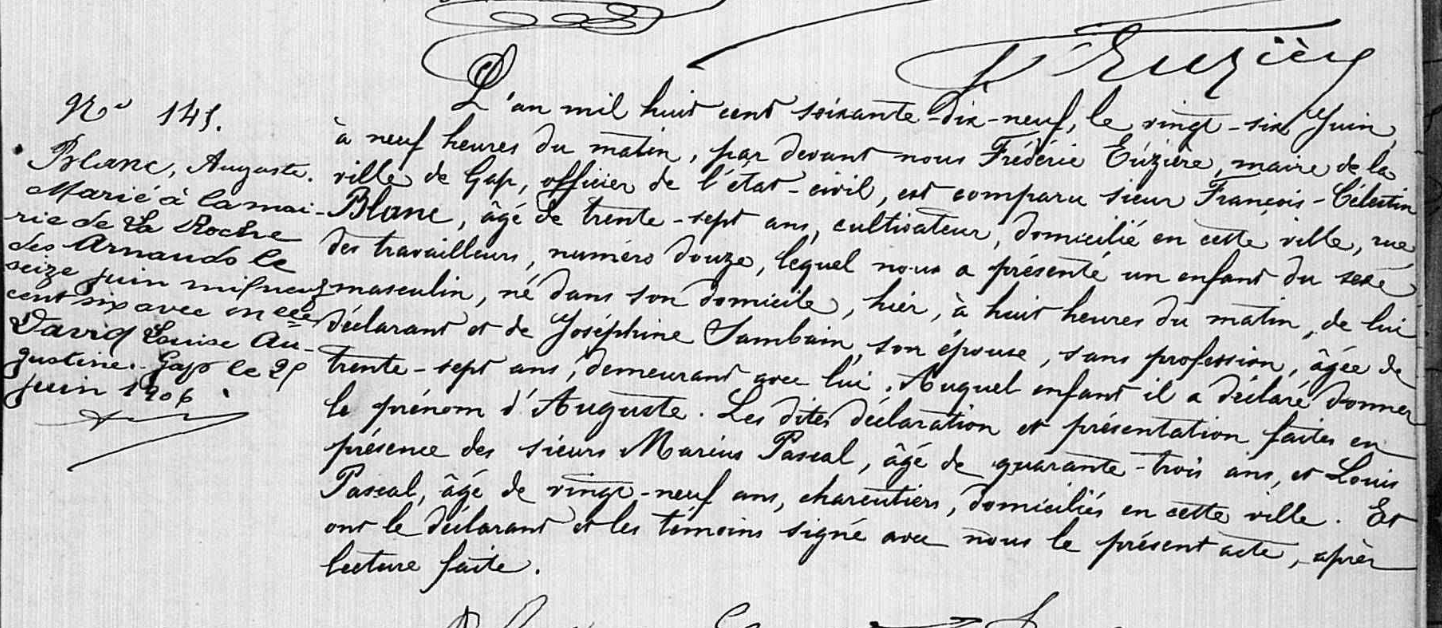 F. Euzière
N° 145.
Blanc, Auguste.
Marié à la mai-
rie de La Roche
des Arnauds le
seize juin mil neuf
cent six avec m elle
David Louise Au-
gustine. Gap le 25
juin 1906.
L'an mil huit cent soixante-dix-neuf, le vingt-six Juin,
à neuf heures du matin, par devant nous Frédéric Euzière, maire de la
ville de Gap, officier de l'état-civil, est comparu sieur François-Célestin
Blanc, âgé de trente-sept ans, cultivateur, domicilié en cette ville, rue
des travailleurs, numéro douze, lequel nous a présenté un enfant du sexe
masculin, né dans son domicile, hier, à huit heures du matin, de lui
déclarant et de Joséphine Sambain, son épouse, sans profession, âgée de
trente-sept ans, demeurant avec lui. Auquel enfant il a déclaré donner
le prénom d'Auguste. Les dites déclaration et présentation faites en
présence des sieurs Marius Pascal, âgé de quarante-trois ans, et Louis
Pascal, âgé de vingt-neuf ans, charcutiers, domiciliés en cette ville. Et
ont le déclarant et les témoins signé avec nous le présent acte, après
lecture faite.